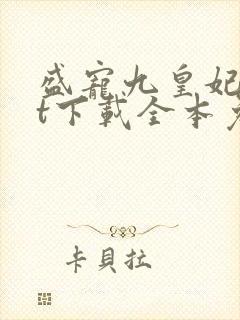 盛寵九皇妃
t下載全本
卡貝拉